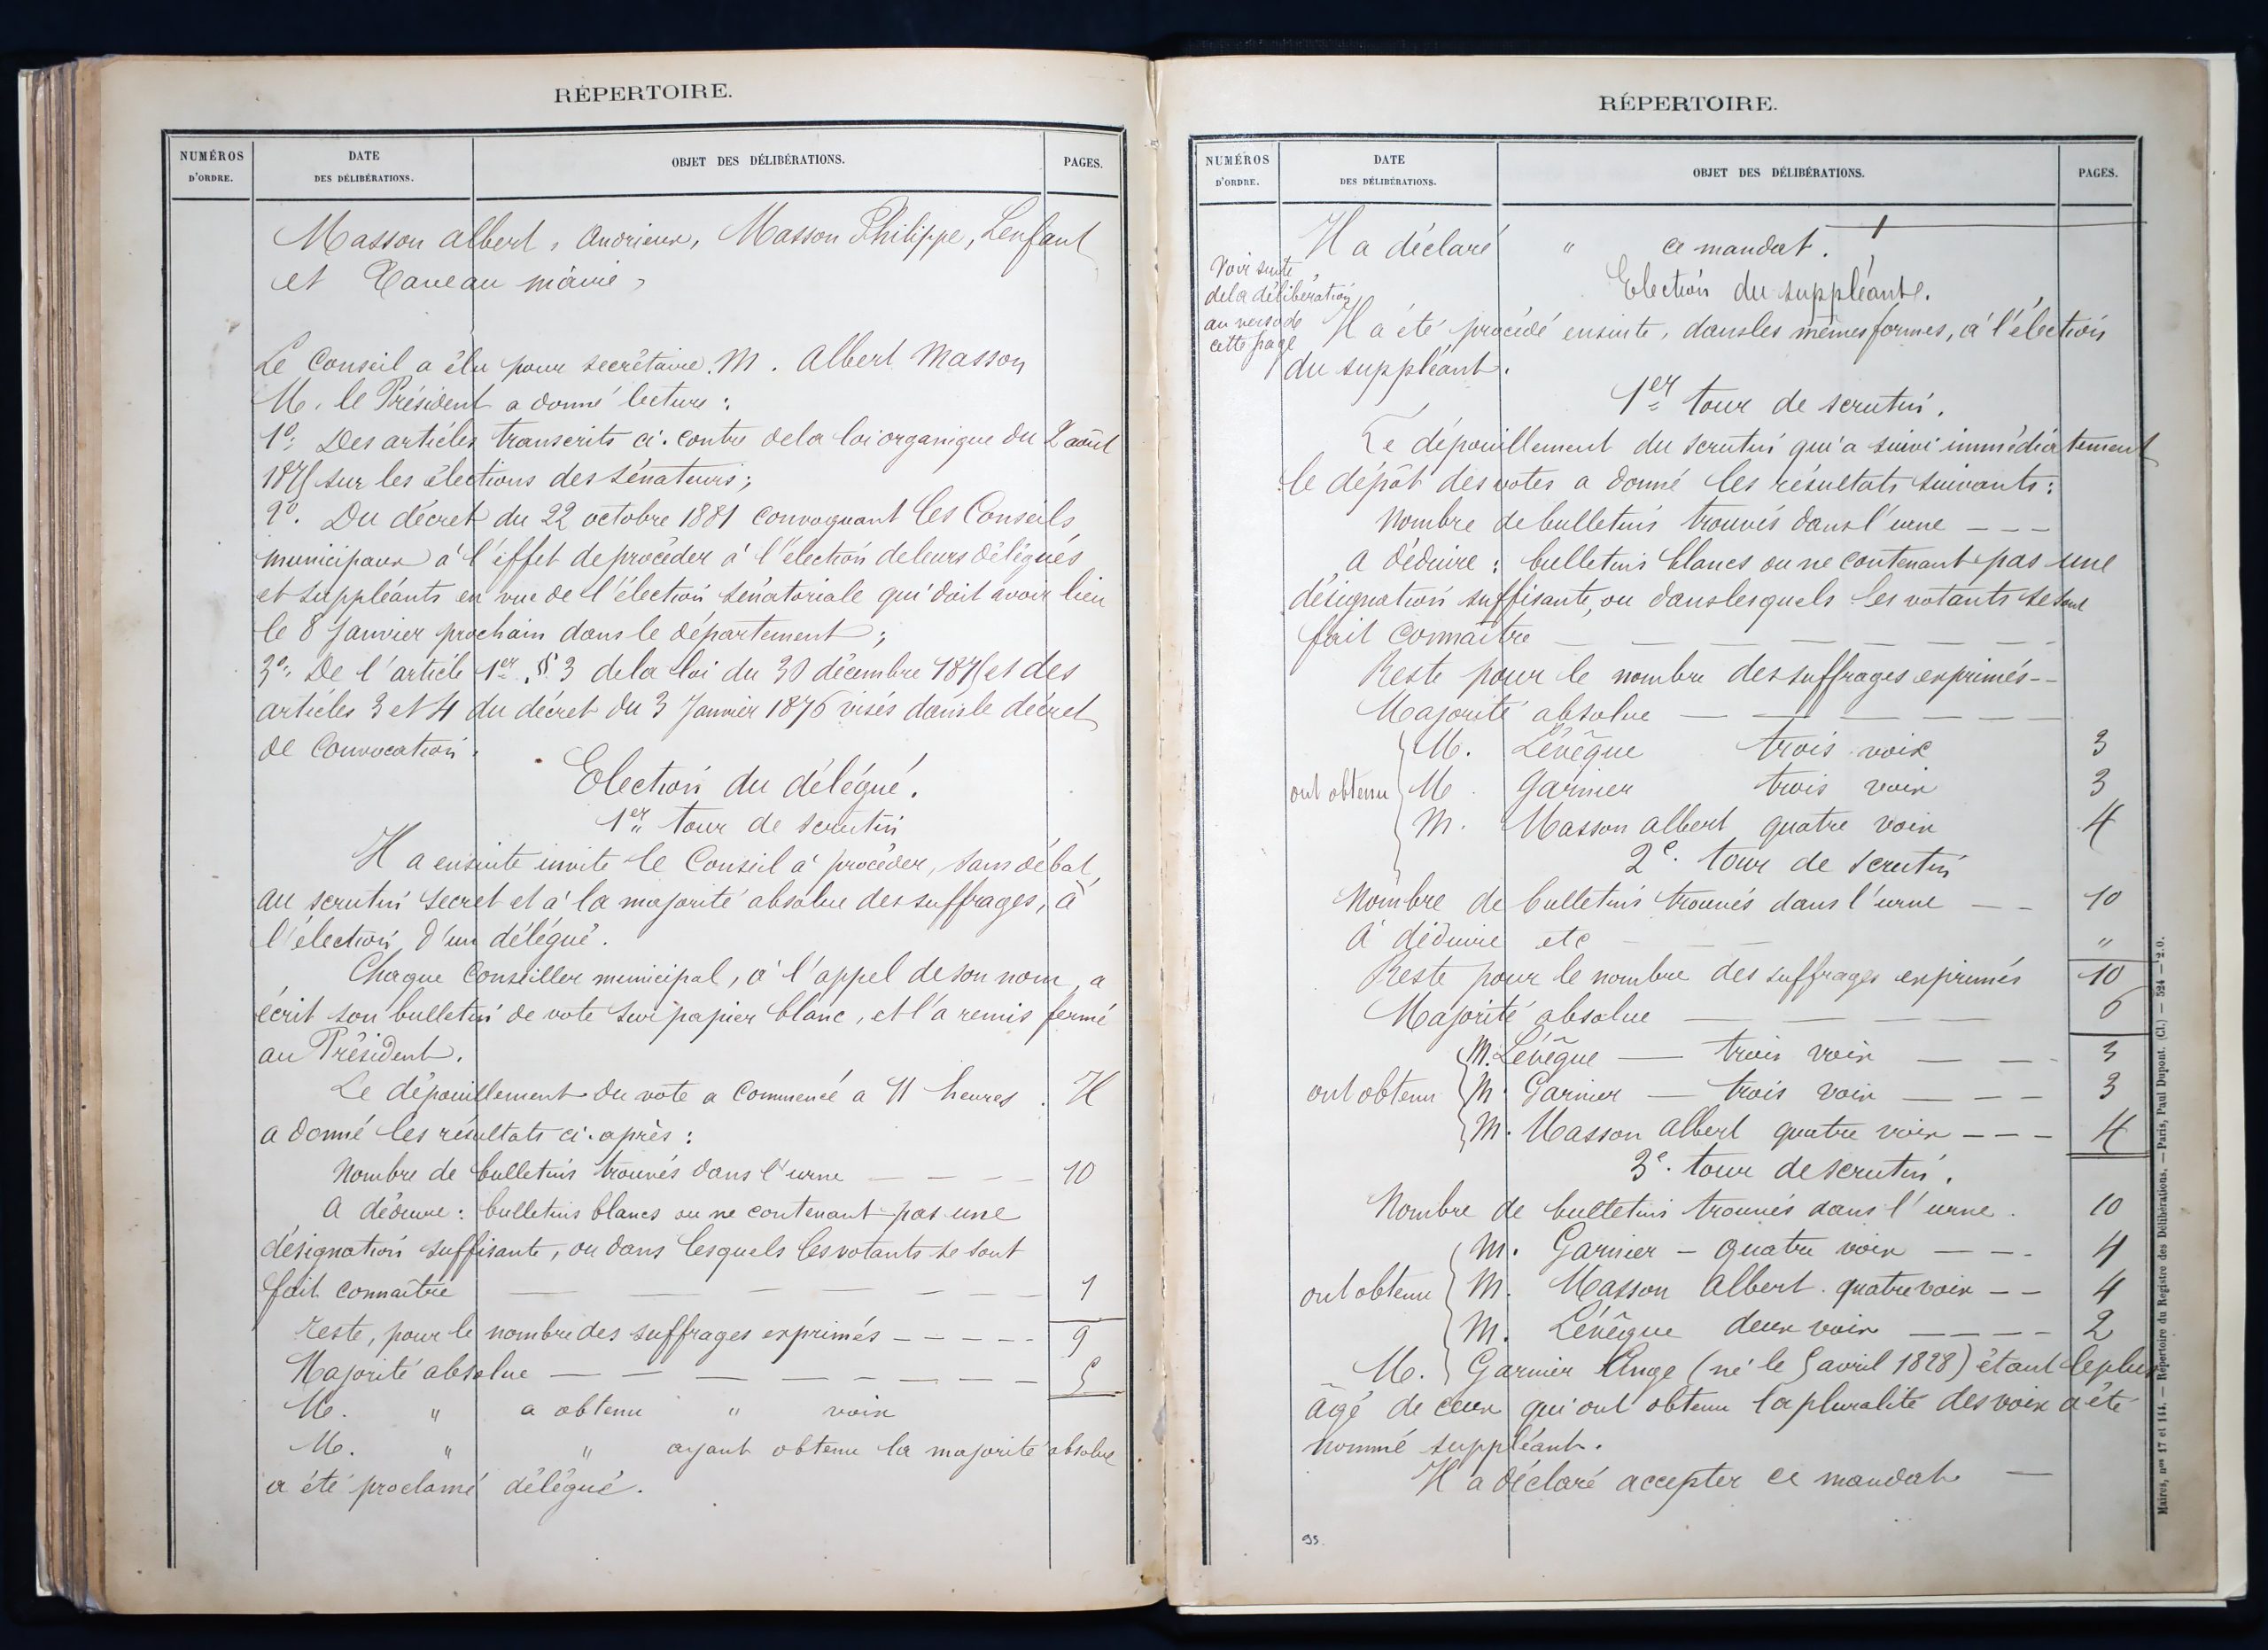 RÉPERTOIRE.
NUMÉROS D'ORDRE.
DATE DES DÉLIBÉRATIONS.
OBJET DES DÉLIBÉRATIONS.
PAGES.
Masson albert, Andrieux, Masson Philippe, Lenfant
et Caveau maire,
Le Conseil a élu pour secrétaire M. Albert Masson
M. le Président a donné lecture :
1°. Des articles transcrits ci-contre de la loi organique du 2 août
1875 sur les élections des sénateurs ;
2°. Du décret du 22 octobre 1881 convoquant les Conseils
municipaux à l'effet de procéder à l'élection de leurs délégués
et suppléants en vue de l'élection sénatoriale qui doit avoir lieu
le 8 Janvier prochain dans le département ;
3°. De l'article 1er § 3 de la loi du 30 décembre 1875 et des
articles 3 et 4 du décret du 3 Janvier 1876 visés dans le décret
de convocation.
Election du délégué.
1er tour de scrutin
Il a ensuite invité le Conseil à procéder, sans débat,
au scrutin secret et à la majorité absolue des suffrages, à
l'élection d'un délégué.
Chaque Conseiller municipal, à l'appel de son nom, a
écrit son bulletin de vote sur papier blanc, et l'a remis fermé
au Président.
Le dépouillement du vote a commencé a 11 heures . Il
a donné les résultats ci-après :
Nombre de bulletins trouvés dans l'urne — — — — 10
A déduire : bulletins blancs ou ne contenant pas une
désignation suffisante, ou dans lesquels les votants se sont
fait connaître — — — — — — — 1
reste, pour le nombre des suffrages exprimés — — — — — 9
Majorité absolue — — — — — — — — 5
M. " a obtenu " voix
M. " " ayant obtenu la majorité absolue
a été proclamé délégué.
RÉPERTOIRE.
NUMÉROS D'ORDRE.
DATE DES DÉLIBÉRATIONS.
OBJET DES DÉLIBÉRATIONS.
PAGES.
Il a déclaré " ce mandat.
Voir suite
de la délibération
au verso de
cette page
Election du suppléant.
Il a été procédé ensuite, dans les mêmes formes, à l'élection
du suppléant.
1er tour de scrutin.
Le dépouillement du scrutin qui a suivi immédiatement
le dépôt des votes a donné les résultats suivants :
Nombre de bulletins trouvés dans l'urne — — —
a déduire : bulletins blancs ou ne contenant pas une
désignation suffisante, ou dans lesquels les votants se sont
fait connaître — — — — — — —
Reste pour le nombre des suffrages exprimés — —
Majorité absolue — — — — — —
M. Lévêque trois voix 3
ont obtenu M. Garnier trois voix 3
M. Masson albert quatre voix 4
2e. tour de scrutin
Nombre de bulletins trouvés dans l'urne — — 10
A déduire etc — — — "
Reste pour le nombre des suffrages exprimés 10
Majorité absolue — — — — 6
M. Lévêque — trois voix — — — 3
ont obtenu M. Garnier — trois voix — — — 3
M. Masson albert quatre voix — — — 4
3e. tour de scrutin.
Nombre de bulletins trouvés dans l'urne. 10
M. Garnier — quatre voix — — — 4
ont obtenu M. Masson Albert. quatre voix — — 4
M. Lévêque deux voix — — — — 2
M. Garnier Ange (né le 5 avril 1828) étant le plus
âgé de ceux qui ont obtenu la pluralité des voix a été
nommé suppléant.
Il a déclaré accepter ce mandat —
95
Maires, nos 17 et 144. — Répertoire du Registre des Délibérations. — Paris, Paul Dupont. (Cl.) — 524 — 2.0.